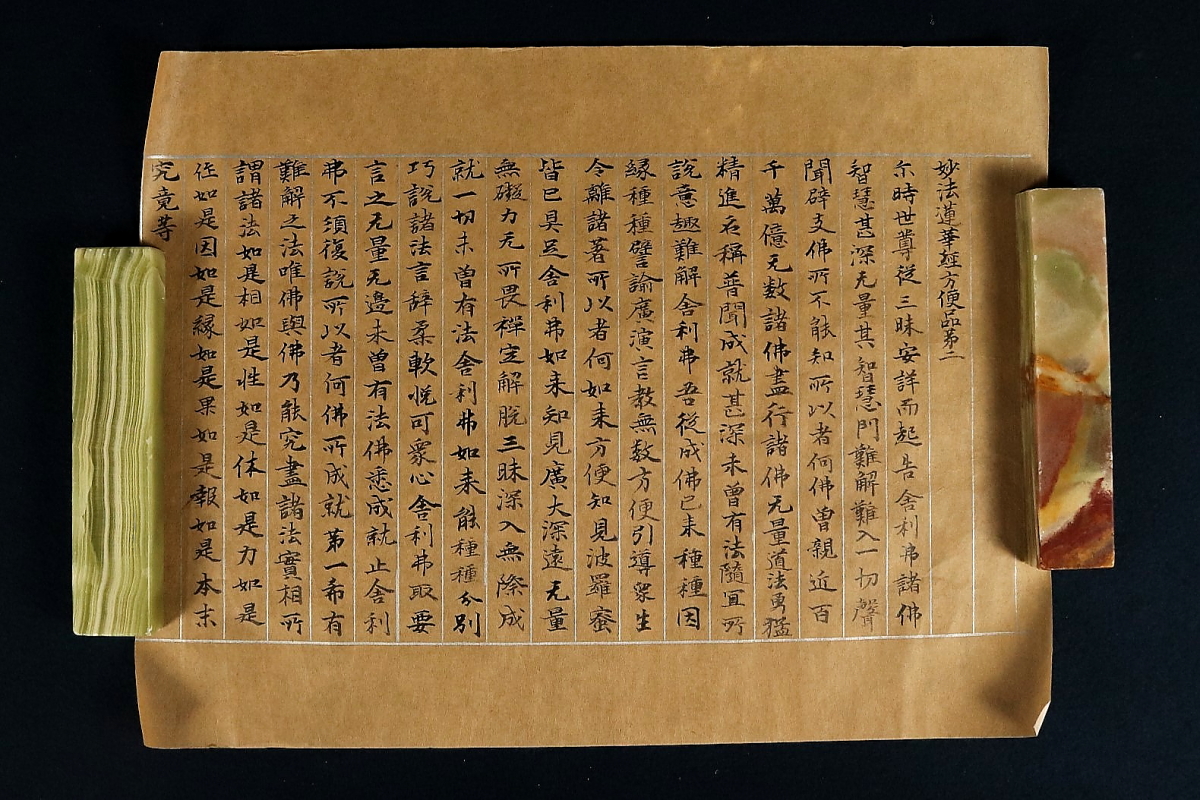 妙法蓮華經方便品第二
尓時世尊從三昧安詳而起告舍利弗諸佛
智慧甚深无量其智慧門難解難入一切聲
聞辟支佛所不能知所以者何佛曾親近百
千萬億无数諸佛盡行諸佛无量道法勇猛
精進名稱普聞成就甚深未曾有法隨宜所
說意趣難解舍利弗吾從成佛已来種種因
緣種種譬諭廣演言教無数方便引導眾生
令離諸著所以者何如来方便知見波羅蜜
皆已具足舍利弗如来知見廣大深遠无量
無礙力无所畏禪定解脫三昧深入無際成
就一切未曾有法舍利弗如来能種種分別
巧說諸法言辭柔軟悅可眾心舍利弗取要
言之无量无邊未曾有法佛悉成就止舍利
弗不須復說所以者何佛所成就第一希有
難解之法唯佛與佛乃能究盡諸法實相所
謂諸法如是相如是性如是体如是力如是
作如是因如是緣如是果如是報如是本末
究竟等